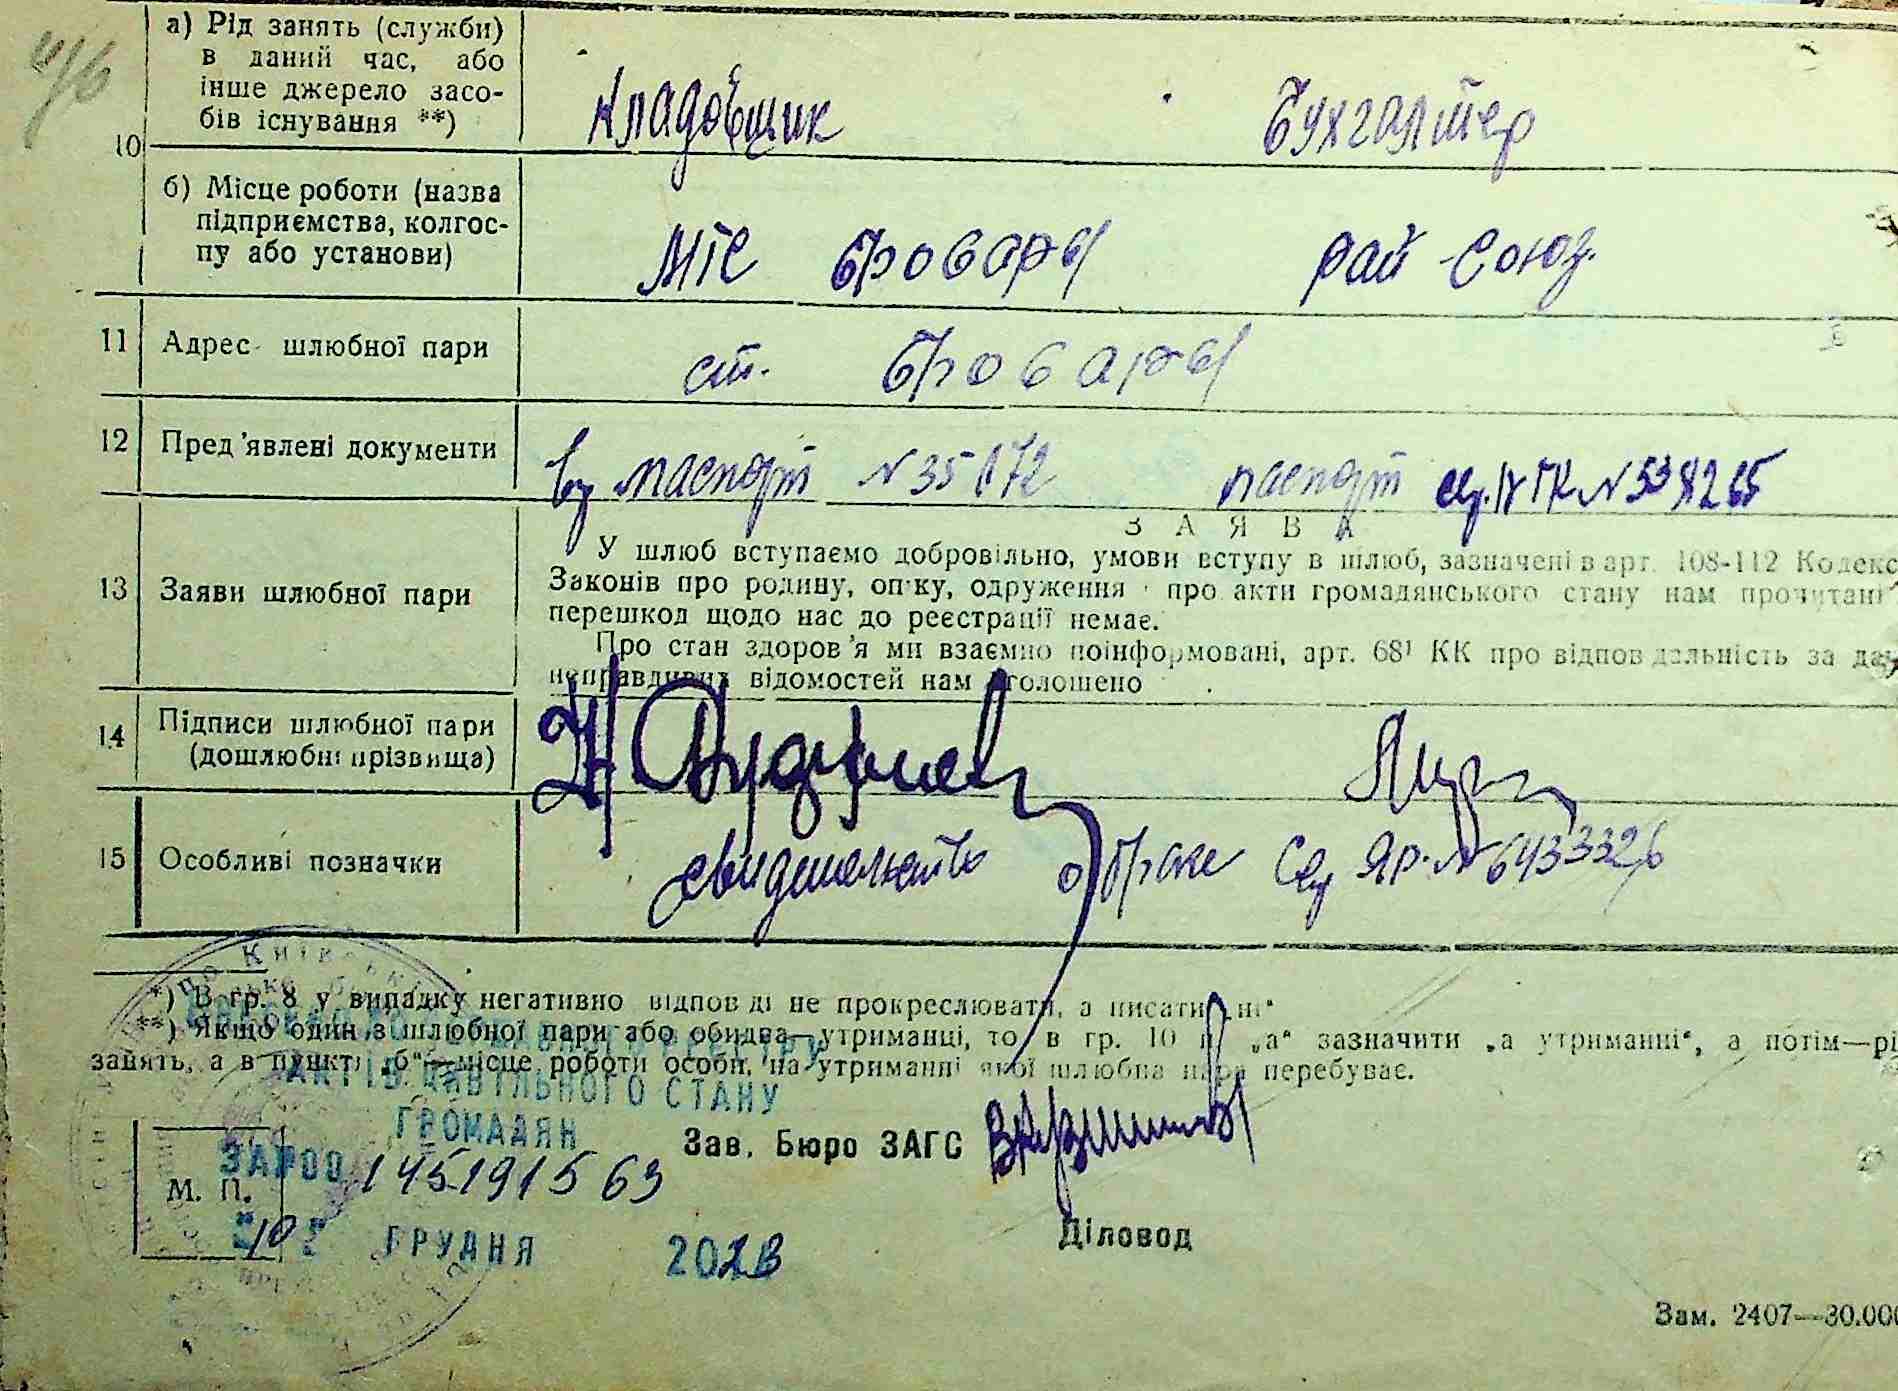 а) Рід занять (служби)
в даний час, або
інше джерело засо-
бів існування **)
Кладовщик Бухгалтер
10
б) Місце роботи (назва
підприємства, колгос-
пу або установи)
МТС Бровары Рай Союз.
11 Адрес шлюбної пари ст. Бровары
12 Пред'явлені документи паспорт N 35 172 паспорт
З А Я В А
13 Заяви шлюбної пари
У шлюб вступаємо добровільно, умови вступу в шлюб, зазначені в арт. 108-112 Кодекс
Законів про родину, опіку, одруження і про акти громадянського стану нам прочитані
перешкод щодо нас до реєстрації немає.
Про стан здоров'я ми взаємно поінформовані, арт. 68¹ КК про відповідальність за дач
неправдивих відомостей нам оголошено
14 Підписи шлюбної пари
(дошлюбні прізвища)
15 Особливі позначки свидетельство о браке Сер ЯР. N 643332
*) В гр. 8 у випадку негативно відповіді не прокреслювати, а писати „ні“
**) Якщо один з шлюбної пари або обидва—утриманці, то в гр. 10 п. „а“ зазначити „а утриманні“, а потім—рі
занять, а в пункті „б“—місце роботи особи, на утриманні якої шлюбна пара перебуває.
АКТІВ ЦИВІЛЬНОГО СТАНУ
ГРОМАДЯН
Зав. Бюро ЗАГС
1451915 63
М. П.
10 ГРУДНЯ 2023
Діловод
Зам. 2407—30.000